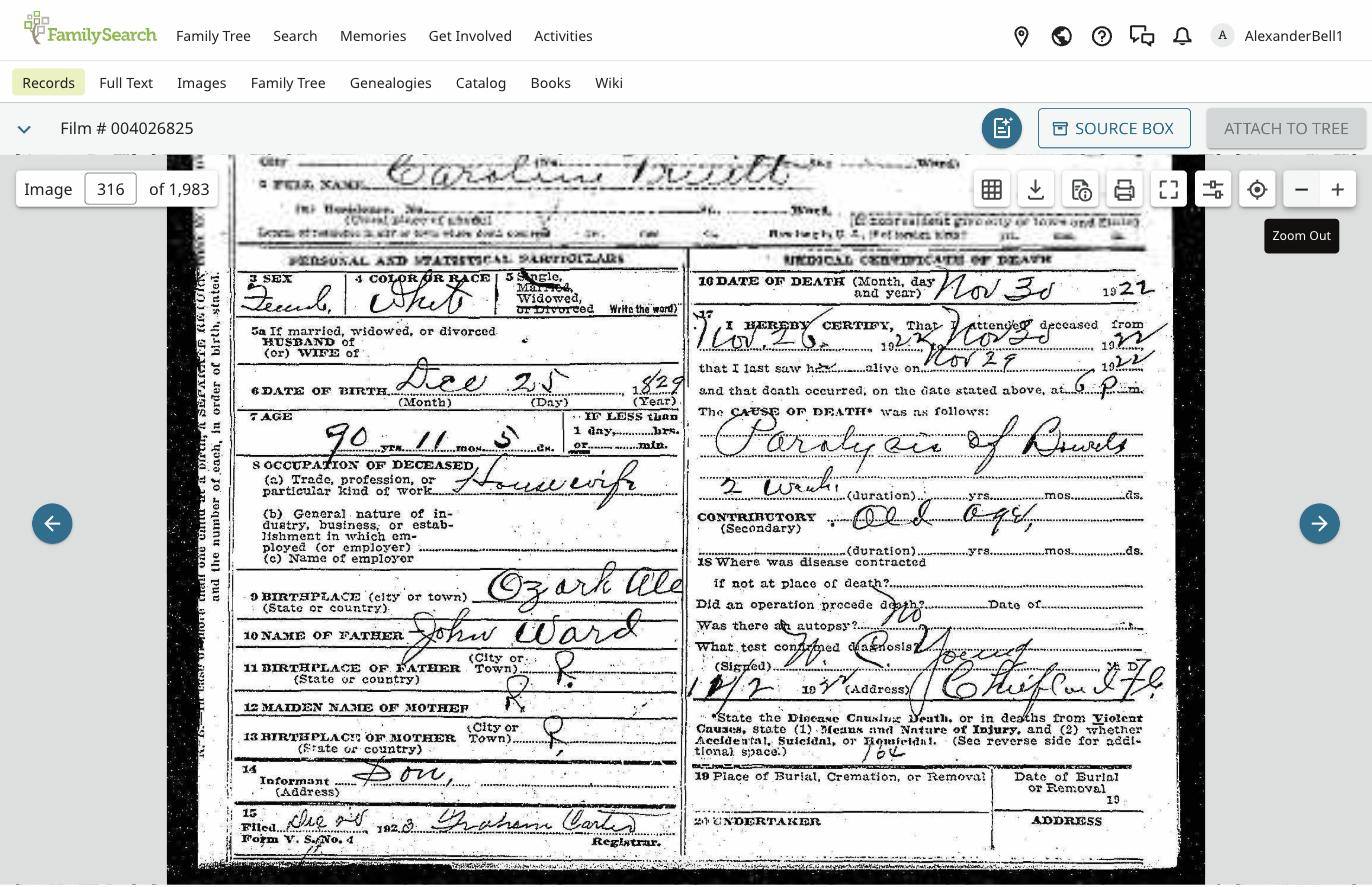 FamilySearch Family Tree Search Memories Get Involved Activities A AlexanderBell1
Records Full Text Images Family Tree Genealogies Catalog Books Wiki
Film # 004026825 SOURCE BOX ATTACH TO TREE
Image 316 of 1,983
Zoom Out
City (No. Ward)
2 FULL NAME Caroline
(a) Residence. No. St. Ward.
(Usual place of abode) (If nonresident give city or town and State)
PERSONAL AND STATISTICAL PARTICULARS
3 SEX 4 COLOR OR RACE 5 Single, Married, Widowed, or Divorced Write the word)
White
5a If married, widowed, or divorced
HUSBAND of
(or) WIFE of
6 DATE OF BIRTH Dec 25 1829
(Month) (Day) (Year)
7 AGE IF LESS than
90 yrs. 11 mos. 5 ds. 1 day, hrs.
or min.
8 OCCUPATION OF DECEASED
(a) Trade, profession, or
particular kind of work Housewife
(b) General nature of in-
dustry, business, or estab-
lishment in which em-
ployed (or employer)
(c) Name of employer
9 BIRTHPLACE (city or town) Ozark Ala
(State or country)
10 NAME OF FATHER John Ward
11 BIRTHPLACE OF FATHER (City or Town) R.
(State or country)
12 MAIDEN NAME OF MOTHER R
13 BIRTHPLACE OF MOTHER (City or Town) R,
(State or country)
14
Informant Son,
(Address)
15
Filed 1923 Graham Carter
Form V. S. No. 4 Registrar.
and the number of each, in order of birth, stated.
MEDICAL CERTIFICATE OF DEATH
16 DATE OF DEATH (Month, day and year) Nov 30 1922
17 I HEREBY CERTIFY, That I attended deceased from
Nov. 26, 1922, Nov 30 1922
that I last saw h alive on Nov 29 1922
and that death occurred, on the date stated above, at 6 P m.
The CAUSE OF DEATH* was as follows:
Paralysis of Bowels
2 Weeks (duration) yrs. mos. ds.
CONTRIBUTORY Old age,
(Secondary)
(duration) yrs. mos. ds.
18 Where was disease contracted
if not at place of death?
Did an operation precede death? Date of
Was there an autopsy? No
What test confirmed diagnosis?
(Signed) W. C. Young M. D.
12/2 1922 (Address) Chiefland Fla
*State the Disease Causing Death, or in deaths from Violent
Causes, state (1) Means and Nature of Injury, and (2) whether
Accidental, Suicidal, or Homicidal. (See reverse side for addi-
tional space.)
19 Place of Burial, Cremation, or Removal Date of Burial or Removal
19
20 UNDERTAKER ADDRESS